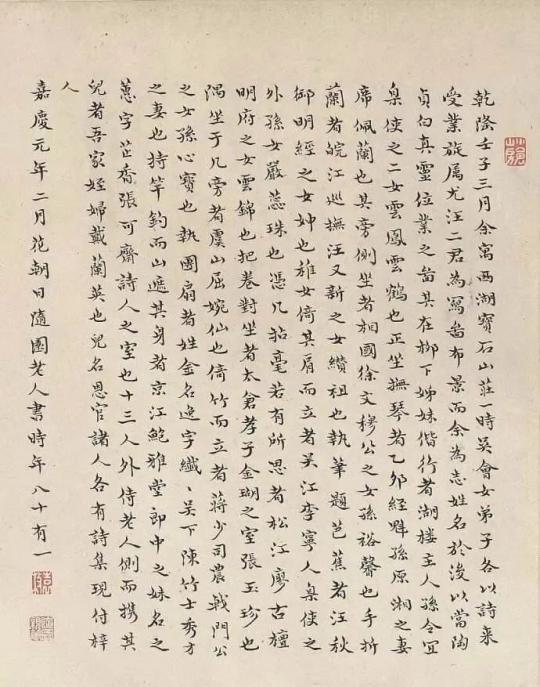 乾隆壬子三月余寓西湖寶石山莊一時吴會女弟子各以詩来
受業旋属尤汪二君為寫啚布景而余為志姓名於後以當陶
貞白真靈位業之啚其在柳下姊妹偕行者湖楼主人孫令宜
臬使之二女雲鳳雲鶴也正坐撫琴者乙卯經魁孫原湘之妻
席佩蘭也其旁側坐者相國徐文穆公之女孫裕馨也手折
蘭者皖江巡撫汪又新之女纘祖也執筆題芭蕉者汪秋
御明經之女妽也稚女倚其肩而立者吴江李寧人臬使之
外孫女嚴蕊珠也憑几拈毫若有所思者松江廖古檀
明府之女雲錦也把卷對坐者太倉孝子金瑚之室張玉珍也
隅坐于几旁者虞山屈婉仙也倚竹而立者蔣少司農戟門公
之女孫心寶也執團扇者姓金名逸字纖〻吴下陳竹士秀才
之妻也持竿釣而山遮其身者京江鮑雅堂郎中之妹名之
蕙字芷香張可齋詩人之室也十三人外侍老人側而携其
兒者吾家姪婦戴蘭英也兒名恩官諸人各有詩集現付梓
人
嘉慶元年二月花朝日隨園老人書時年八十有一